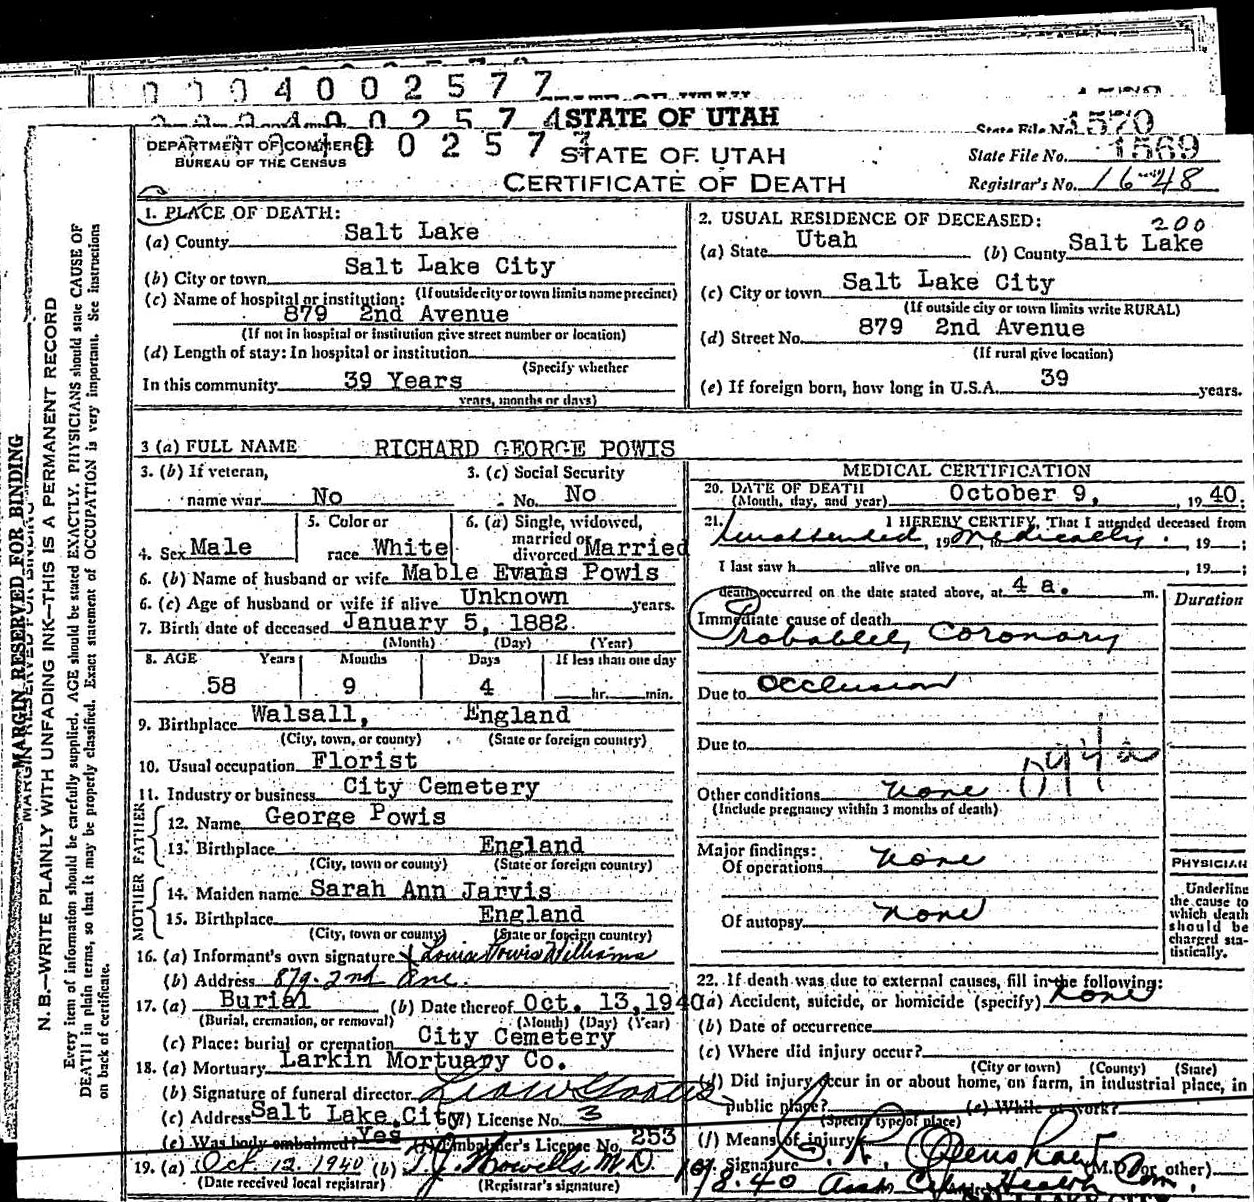 0004002577
STATE OF UTAH
State File No. 1570
DEPARTMENT OF COMMERCE
BUREAU OF THE CENSUS
STATE OF UTAH
State File No. 1569
CERTIFICATE OF DEATH
Registrar's No. 1648
1. PLACE OF DEATH:
(a) County Salt Lake
(b) City or town Salt Lake City
(If outside city or town limits name precinct)
(c) Name of hospital or institution:
879 2nd Avenue
(If not in hospital or institution give street number or location)
(d) Length of stay: In hospital or institution
(Specify whether
In this community 39 Years
years, months or days)
2. USUAL RESIDENCE OF DECEASED:
200
(a) State Utah (b) County Salt Lake
(c) City or town Salt Lake City
(If outside city or town limits write RURAL)
(d) Street No. 879 2nd Avenue
(If rural give location)
(e) If foreign born, how long in U.S.A. 39 years.
3 (a) FULL NAME RICHARD GEORGE POWIS
3. (b) If veteran,
name war No
3. (c) Social Security
No. No
4. Sex Male
5. Color or
race White
6. (a) Single, widowed,
married or
divorced Married
6. (b) Name of husband or wife Mable Evans Powis
6. (c) Age of husband or wife if alive Unknown years.
7. Birth date of deceased January 5, 1882
(Month) (Day) (Year)
8. AGE Years Months Days If less than one day
58 9 4 hr. min.
9. Birthplace Walsall, England
(City, town, or county) (State or foreign country)
10. Usual occupation Florist
11. Industry or business City Cemetery
FATHER
12. Name George Powis
13. Birthplace England
(City, town or county) (State or foreign country)
MOTHER
14. Maiden name Sarah Ann Jarvis
15. Birthplace England
(City, town or county) (State or foreign country)
16. (a) Informant's own signature x Louise Powis Williams
(b) Address 879-2nd Ave.
17. (a) Burial (b) Date thereof Oct. 13, 1940
(Burial, cremation, or removal) (Month) (Day) (Year)
(c) Place: burial or cremation City Cemetery
18. (a) Mortuary Larkin Mortuary Co.
(b) Signature of funeral director
(c) Address Salt Lake City License No. 3
(e) Was body embalmed? Yes Embalmer's License No. 253
19. (a) Oct. 12. 1940 (b) T. J. Howells M.D.
(Date received local registrar) (Registrar's signature)
MEDICAL CERTIFICATION
20. DATE OF DEATH October 9, 1940.
(Month, day, and year)
21. I HEREBY CERTIFY, That I attended deceased from
Unattended, 19 Medically. 19 ;
I last saw h alive on , 19 ;
death occurred on the date stated above, at 4 a. m.
Duration
Immediate cause of death
Probable coronary
Due to occlusion
Due to
094a
Other conditions none
(Include pregnancy within 3 months of death)
Major findings:
Of operations none
Of autopsy none
PHYSICIAN
Underline
the cause to
which death
should be
charged sta-
tistically.
22. If death was due to external causes, fill in the following:
(a) Accident, suicide, or homicide (specify) none
(b) Date of occurrence
(c) Where did injury occur?
(City or town) (County) (State)
(d) Did injury occur in or about home, on farm, in industrial place, in
public place? (e) While at work?
(Specify type of place)
(f) Means of injury
Signature (M.D. or other)
Asst City Health Com.
MARGIN RESERVED FOR BINDING
N. B.—WRITE PLAINLY WITH UNFADING INK—THIS IS A PERMANENT RECORD
Every item of information should be carefully supplied. AGE should be stated EXACTLY. PHYSICIANS should state CAUSE OF
DEATH in plain terms, so that it may be properly classified. Exact statement of OCCUPATION is very important. See instructions
on back of certificate.